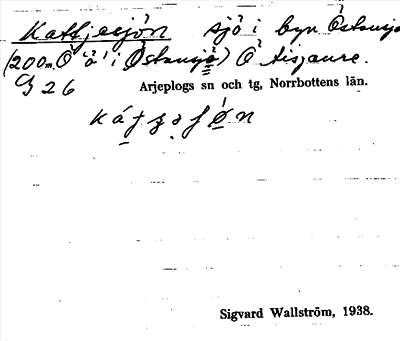 Kattjesjön sjö i byn Östansjö
(200 m. Ö "ä" i Östansjö) Ö tisjaure.
G 26
Arjeplogs sn och tg, Norrbottens län.
Sigvard Wallström, 1938.